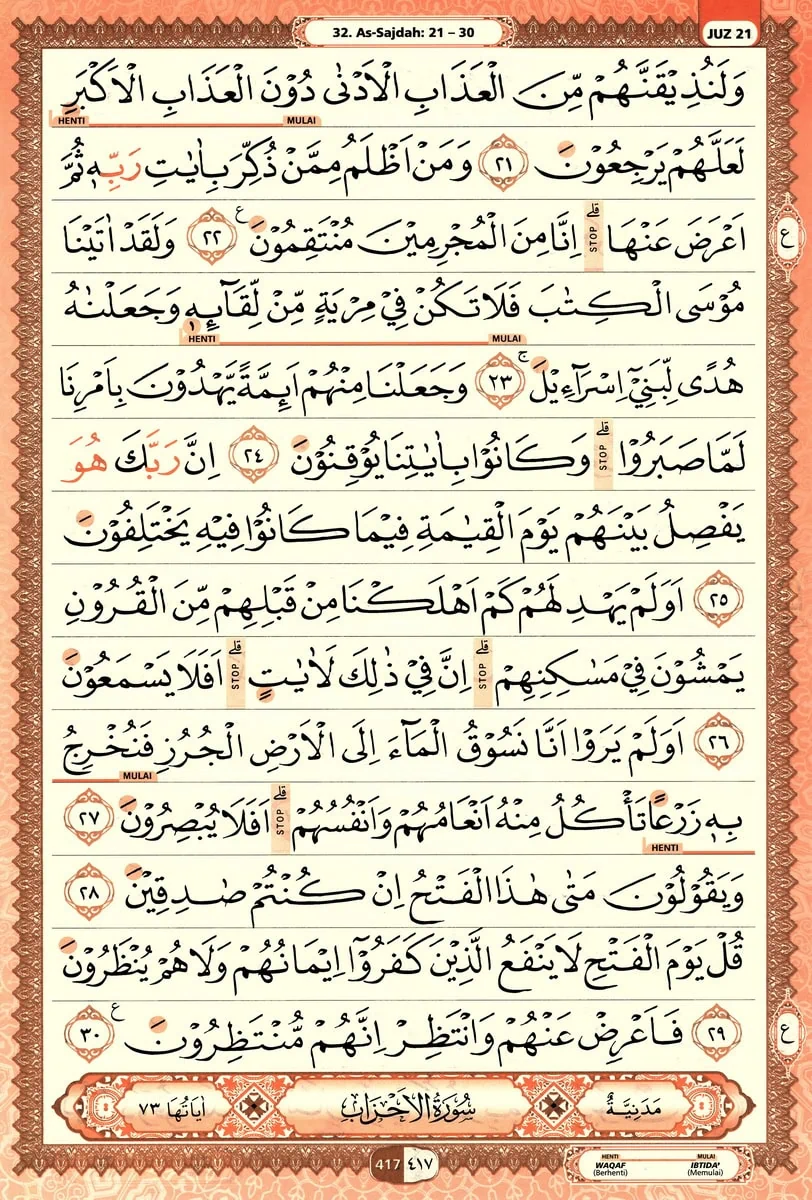 32. As-Sajdah: 21 – 30
JUZ 21
وَلَنُذِيْقَنَّهُمْ مِّنَ الْعَذَابِ الْاَدْنٰى دُوْنَ الْعَذَابِ الْاَكْبَرِ
HENTI MULAI
لَعَلَّهُمْ يَرْجِعُوْنَ ٢١ وَمَنْ اَظْلَمُ مِمَّنْ ذُكِّرَ بِاٰيٰتِ رَبِّهٖ ثُمَّ
اَعْرَضَ عَنْهَا ۗ قلى STOP اِنَّا مِنَ الْمُجْرِمِيْنَ مُنْتَقِمُوْنَ ࣖ ٢٢ وَلَقَدْ اٰتَيْنَا
ع
مُوْسَى الْكِتٰبَ فَلَا تَكُنْ فِيْ مِرْيَةٍ مِّنْ لِّقَاۤىِٕهٖ وَجَعَلْنٰهُ
١ HENTI MULAI
هُدًى لِّبَنِيْٓ اِسْرَاۤءِيْلَ ۚ ٢٣ وَجَعَلْنَا مِنْهُمْ اَىِٕمَّةً يَّهْدُوْنَ بِاَمْرِنَا
لَمَّا صَبَرُوْا قلى STOP وَكَانُوْا بِاٰيٰتِنَا يُوْقِنُوْنَ ٢٤ اِنَّ رَبَّكَ هُوَ
يَفْصِلُ بَيْنَهُمْ يَوْمَ الْقِيٰمَةِ فِيْمَا كَانُوْا فِيْهِ يَخْتَلِفُوْنَ
٢٥ اَوَلَمْ يَهْدِ لَهُمْ كَمْ اَهْلَكْنَا مِنْ قَبْلِهِمْ مِّنَ الْقُرُوْنِ
يَمْشُوْنَ فِيْ مَسٰكِنِهِمْ قلى STOP اِنَّ فِيْ ذٰلِكَ لَاٰيٰتٍ قلى STOP اَفَلَا يَسْمَعُوْنَ
٢٦ اَوَلَمْ يَرَوْا اَنَّا نَسُوْقُ الْمَاۤءَ اِلَى الْاَرْضِ الْجُرُزِ فَنُخْرِجُ
MULAI
بِهٖ زَرْعًا تَأْكُلُ مِنْهُ اَنْعَامُهُمْ وَاَنْفُسُهُمْ قلى STOP اَفَلَا يُبْصِرُوْنَ ٢٧
HENTI
وَيَقُوْلُوْنَ مَتٰى هٰذَا الْفَتْحُ اِنْ كُنْتُمْ صٰدِقِيْنَ ٢٨
قُلْ يَوْمَ الْفَتْحِ لَا يَنْفَعُ الَّذِيْنَ كَفَرُوْٓا اِيْمَانُهُمْ وَلَا هُمْ يُنْظَرُوْنَ
٢٩ فَاَعْرِضْ عَنْهُمْ وَانْتَظِرْ اِنَّهُمْ مُّنْتَظِرُوْنَ ࣖ ٣٠
ع
مَدَنِيَّةٌ سُوْرَةُ الْاَحْزَابِ اٰيَاتُهَا ٧٣
417 ٤١٧
HENTI MULAI
WAQAF IBTIDA'
(Berhenti) (Memulai)